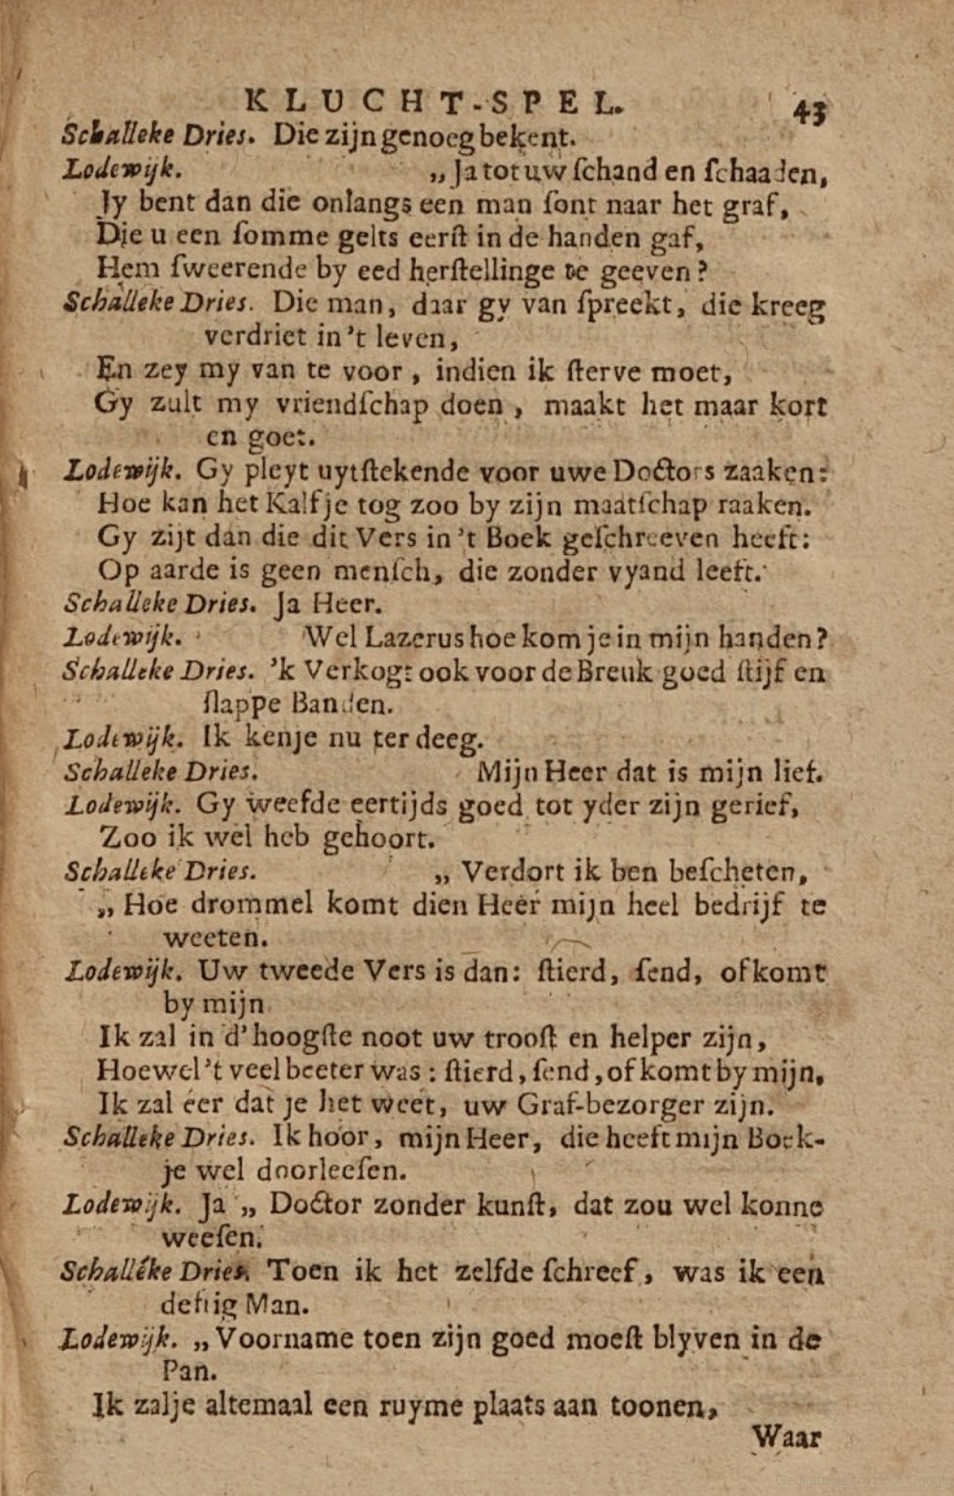 KLUCHT-SPEL. 43
Schalleke Dries. Die zijn genoeg bekent.
Lodewijk. „ Ja tot uw ſchand en ſchaaden,
Jy bent dan die onlangs een man ſont naar het graf,
Die u een ſomme gelts eerſt in de handen gaf,
Hem ſweerende by eed herſtellinge te geeven?
Schalleke Dries. Die man, daar gy van ſpreekt, die kreeg
verdriet in 't leven,
En zey my van te voor, indien ik ſterve moet,
Gy zult my vriendſchap doen, maakt het maar kort
en goet.
Lodewijk. Gy pleyt uytſtekende voor uwe Doctors zaaken:
Hoe kan het Kalfje tog zoo by zijn maatſchap raaken.
Gy zijt dan die dit Vers in 't Boek geſchreeven heeft:
Op aarde is geen menſch, die zonder vyand leeft.
Schalleke Dries. Ja Heer.
Lodewijk. Wel Lazerus hoe kom je in mijn handen?
Schalleke Dries. 'k Verkogt ook voor de Breuk goed ſtijf en
ſlappe Banden.
Lodewijk. Ik kenje nu ter deeg.
Schalleke Dries. Mijn Heer dat is mijn lief.
Lodewijk. Gy weefde eertijds goed tot yder zijn gerief,
Zoo ik wel heb gehoort.
Schalleke Dries. „ Verdort ik ben beſcheten,
„ Hoe drommel komt dien Heer mijn heel bedrijf te
weeten.
Lodewijk. Uw tweede Vers is dan: ſtierd, ſend, of komt
by mijn
Ik zal in d' hoogſte noot uw trooſt en helper zijn,
Hoewel 't veel beeter was: ſtierd, ſend, of komt by mijn,
Ik zal eer dat je het weet, uw Graf-bezorger zijn.
Schalleke Dries. Ik hoor, mijn Heer, die heeft mijn Boek-
je wel doorleeſen.
Lodewijk. Ja „ Doctor zonder kunſt, dat zou wel konne
weeſen.
Schalleke Dries. Toen ik het zelfde ſchreef, was ik een
deftig Man.
Lodewijk. „ Voorname toen zijn goed moeſt blyven in de
Pan.
Ik zalje altemaal een ruyme plaats aan toonen,
Waar